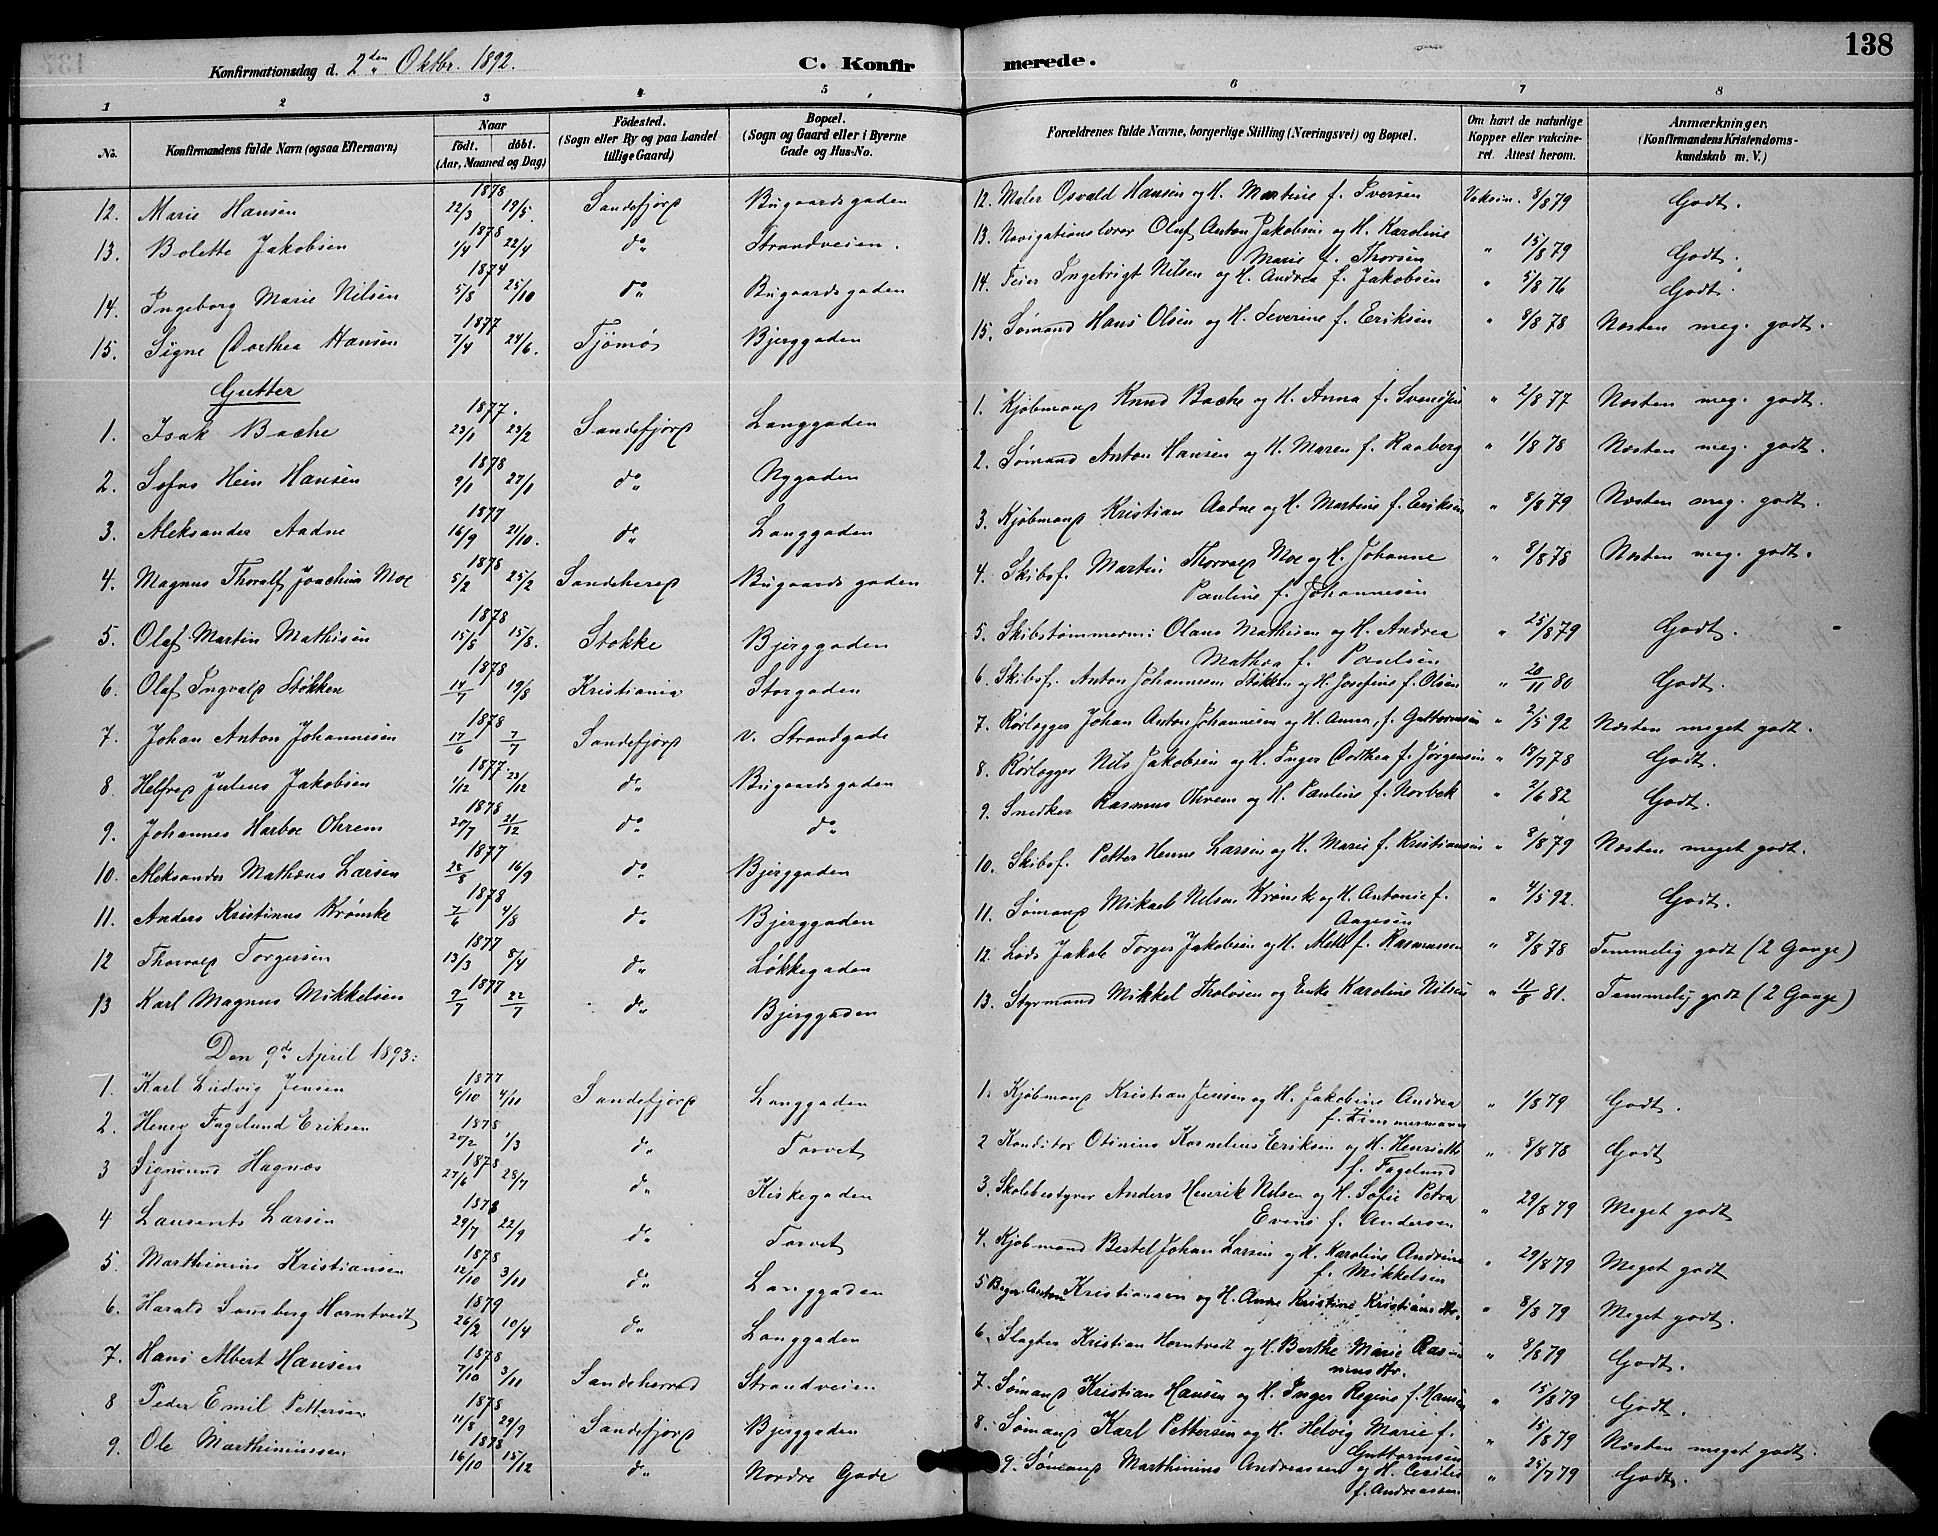 138
Konfirmationsdag d. 2den Oktbr. 1892.
C. Konfirmerede.
1 2 3 4 5 6 7 8
No. Konfirmandens fulde Navn (ogsaa Efternavn) Naar födt. döbt. (Aar, Maaned og Dag) Födested. (Sogn eller By og paa Landet tillige Gaard) Bopæl. (Sogn og Gaard eller i Byerne Gade og Hus-No. Forældrenes fulde Navne, borgerlige Stilling (Næringsvei) og Bopæl. Om havt de naturlige Kopper eller vakcineret. Attest herom. Anmærkninger, (Konfirmandens Kristendomskundskab m. V.)
12. Marie Hansen 1878 22/3 19/5. Sandefjord Bugaardsgaden 12. Maler Osvald Hansen og H. Martine f. Iversen Vaksin. 8/8 79 Godt.
13. Bolette Jakobsen 1878 1/4 22/4 do Strandveien. 13. Navigationslærer Oluf Anton Jakobsen og H. Karoline Marie f. Thorsen " 15/8 79 Godt.
14. Ingeborg Marie Nilsen 1874 5/8 25/10 do Bugaardsgaden 14. Feier Ingebrigt Nilsen og H. Andrea f. Jakobsen " 5/8 76 Godt.
15. Signe Dorthea Hansen 1877 7/4 24/6. Tjömö Bjerggaden 15. Sømand Hans Olsen og H. Severine f. Eriksen " 8/8 78 Næsten meg. godt.
Gutter
1. Isak Bache 1877. 23/1 23/2 Sandefjord Langgaden 1. Kjøbmand Knud Bache og H. Anna f. Svendsen " 2/8 77 Næsten meg. godt.
2. Sofus Hein Hansen 1878 9/1 27/1 do Nygaden 2. Sømand Anton Hansen og H. Maren f. Raaberg " 1/8 78 Næsten meg. godt.
3. Aleksander Aadne 1877 16/9 21/10. do Langgaden 3. Kjøbmand Kristian Aadne og H. Martine f. Eriksen " 8/8 79 Næsten meg. godt.
4. Magnus Thoralf Joachim Moe 1878 5/2 25/2 Sandeherred Bugaardsgaden 4. Skibsf. Martin Thorvald Moe og H. Johanne Pauline f. Johannesen " 8/8 78 Næsten meg. godt.
5. Olaf Martin Mathisen 1878 15/5 15/8. Stokke Bjerggaden 5. Skibstømmerm: Olaus Mathisen og H. Andrea Mathea f. Paulsen " 25/8 79 Godt.
6. Olaf Ingvald Støkken 1878 14/7 19/8 Kristiania Storgaden 6. Skibsf. Anton Johannesen Støkken og H. Josefine f. Olsen " 20/11 80 Godt.
7. Johan Anton Johannesen 1878 17/6 7/7 Sandefjord v. Strandgade 7. Rørlægger Johan Anton Johannesen og H. Anna f. Guttormsen " 2/5 92 Næsten meget godt.
8. Helfred Julius Jakobsen 1877. 1/12 23/12 do Bugaardsgaden 8. Rørlægger Nils Jakobsen og H. Inger Dorthea f. Jørgensen " 18/7 78 Godt.
9. Johannes Harboe Ohrem 1878 20/7 21/12 do do 9. Snedker Rasmus Ohrem og H. Pauline f. Norbek " 2/6 82 Godt.
10. Aleksander Mathæus Larsen 1877 28/8 16/9 do Bjerggaden 10. Skibsf. Petter Henne Larsen og H. Marie f. Kristiansen " 8/8 79 Næsten meget godt.
11. Anders Kristinus Krønike 1878 7/6 4/8 do Bjerggaden 11. Sømand Mikael Nilsen Krønike og H. Antonie f. Aagesen " 4/5 92. Godt.
12 Thorvald Torgersen 1877 13/3 8/4 do Løkkegaden 12. Lods Jakob Torger Jakobsen og H. Mette f. Rasmussen " 8/8 78 Temmelig godt (2 Gange)
13 Karl Magnus Mikkelsen 1877 7/7 22/7 do Bjerggaden 13. Styrmand Mikkel Tholosen og Enke Karoline Nilsen " 11/8 81. Temmelig godt (2 Gange)
Den 9de April 1893:
1. Karl Ludvig Jensen 1877 6/10 4/11 Sandefjord Langgaden 1. Kjøbmand Kristian Jensen og H. Jakobine Andrea f. Zimmermann " 1/8 79 Godt.
2. Henry Fagelund Eriksen 1878 20/2 1/3 do Torvet 2 Konditor Otinius Kornelius Eriksen og H. Henriette f. Fagelund " 8/8 78 Godt
3 Sigmund Hagnæs 1878 27/6 28/7 do Kirkegaden 3. Skolebestyrer Anders Henrik Nilsen og H. Sofie Petra Evine f. Andersen " 29/8 79 Meget godt
4 Laurents Larsen 1878 29/7 22/9 do Torvet 4. Kjøbmand Bestel Johan Larsen og H. Karoline Andrine f. Mikkelsen " 29/8 79 Meget godt
5. Marthinius Kristiansen 1878 12/10 3/11 do Langgaden 5 Bager Anton Kristiansen og H. Anne Kristine Kristiansdtr. " 8/8 79 Meget godt.
6. Harald Samberg Horntvedt 1879 26/2 10/4 do Langgaden 6. Slagter Kristian Horntvedt og H. Berthe Marie Rasmusdtr. " 8/8 79 Godt.
7. Hans Albert Hansen 1878 7/10 3/11 Sandeherred Strandveien 7. Sømand Kristian Hansen og H. Inger Regine f. Hansen " 15/8 79 Godt.
8 Peder Emil Pettersen 1878 11/8 29/9 Sandefjord Bjerggaden 8. Sømand Karl Pettersen og H. Helvig Marie f. Guttormsen " 15/8 79 Næsten meget godt.
9. Ole Marthiniussen 1878 16/10 15/12 do Nordre Gade 9. Sømand Marthinius Andreassen og H. Cecilie f. Andreassen. " 25/7 79 Godt.